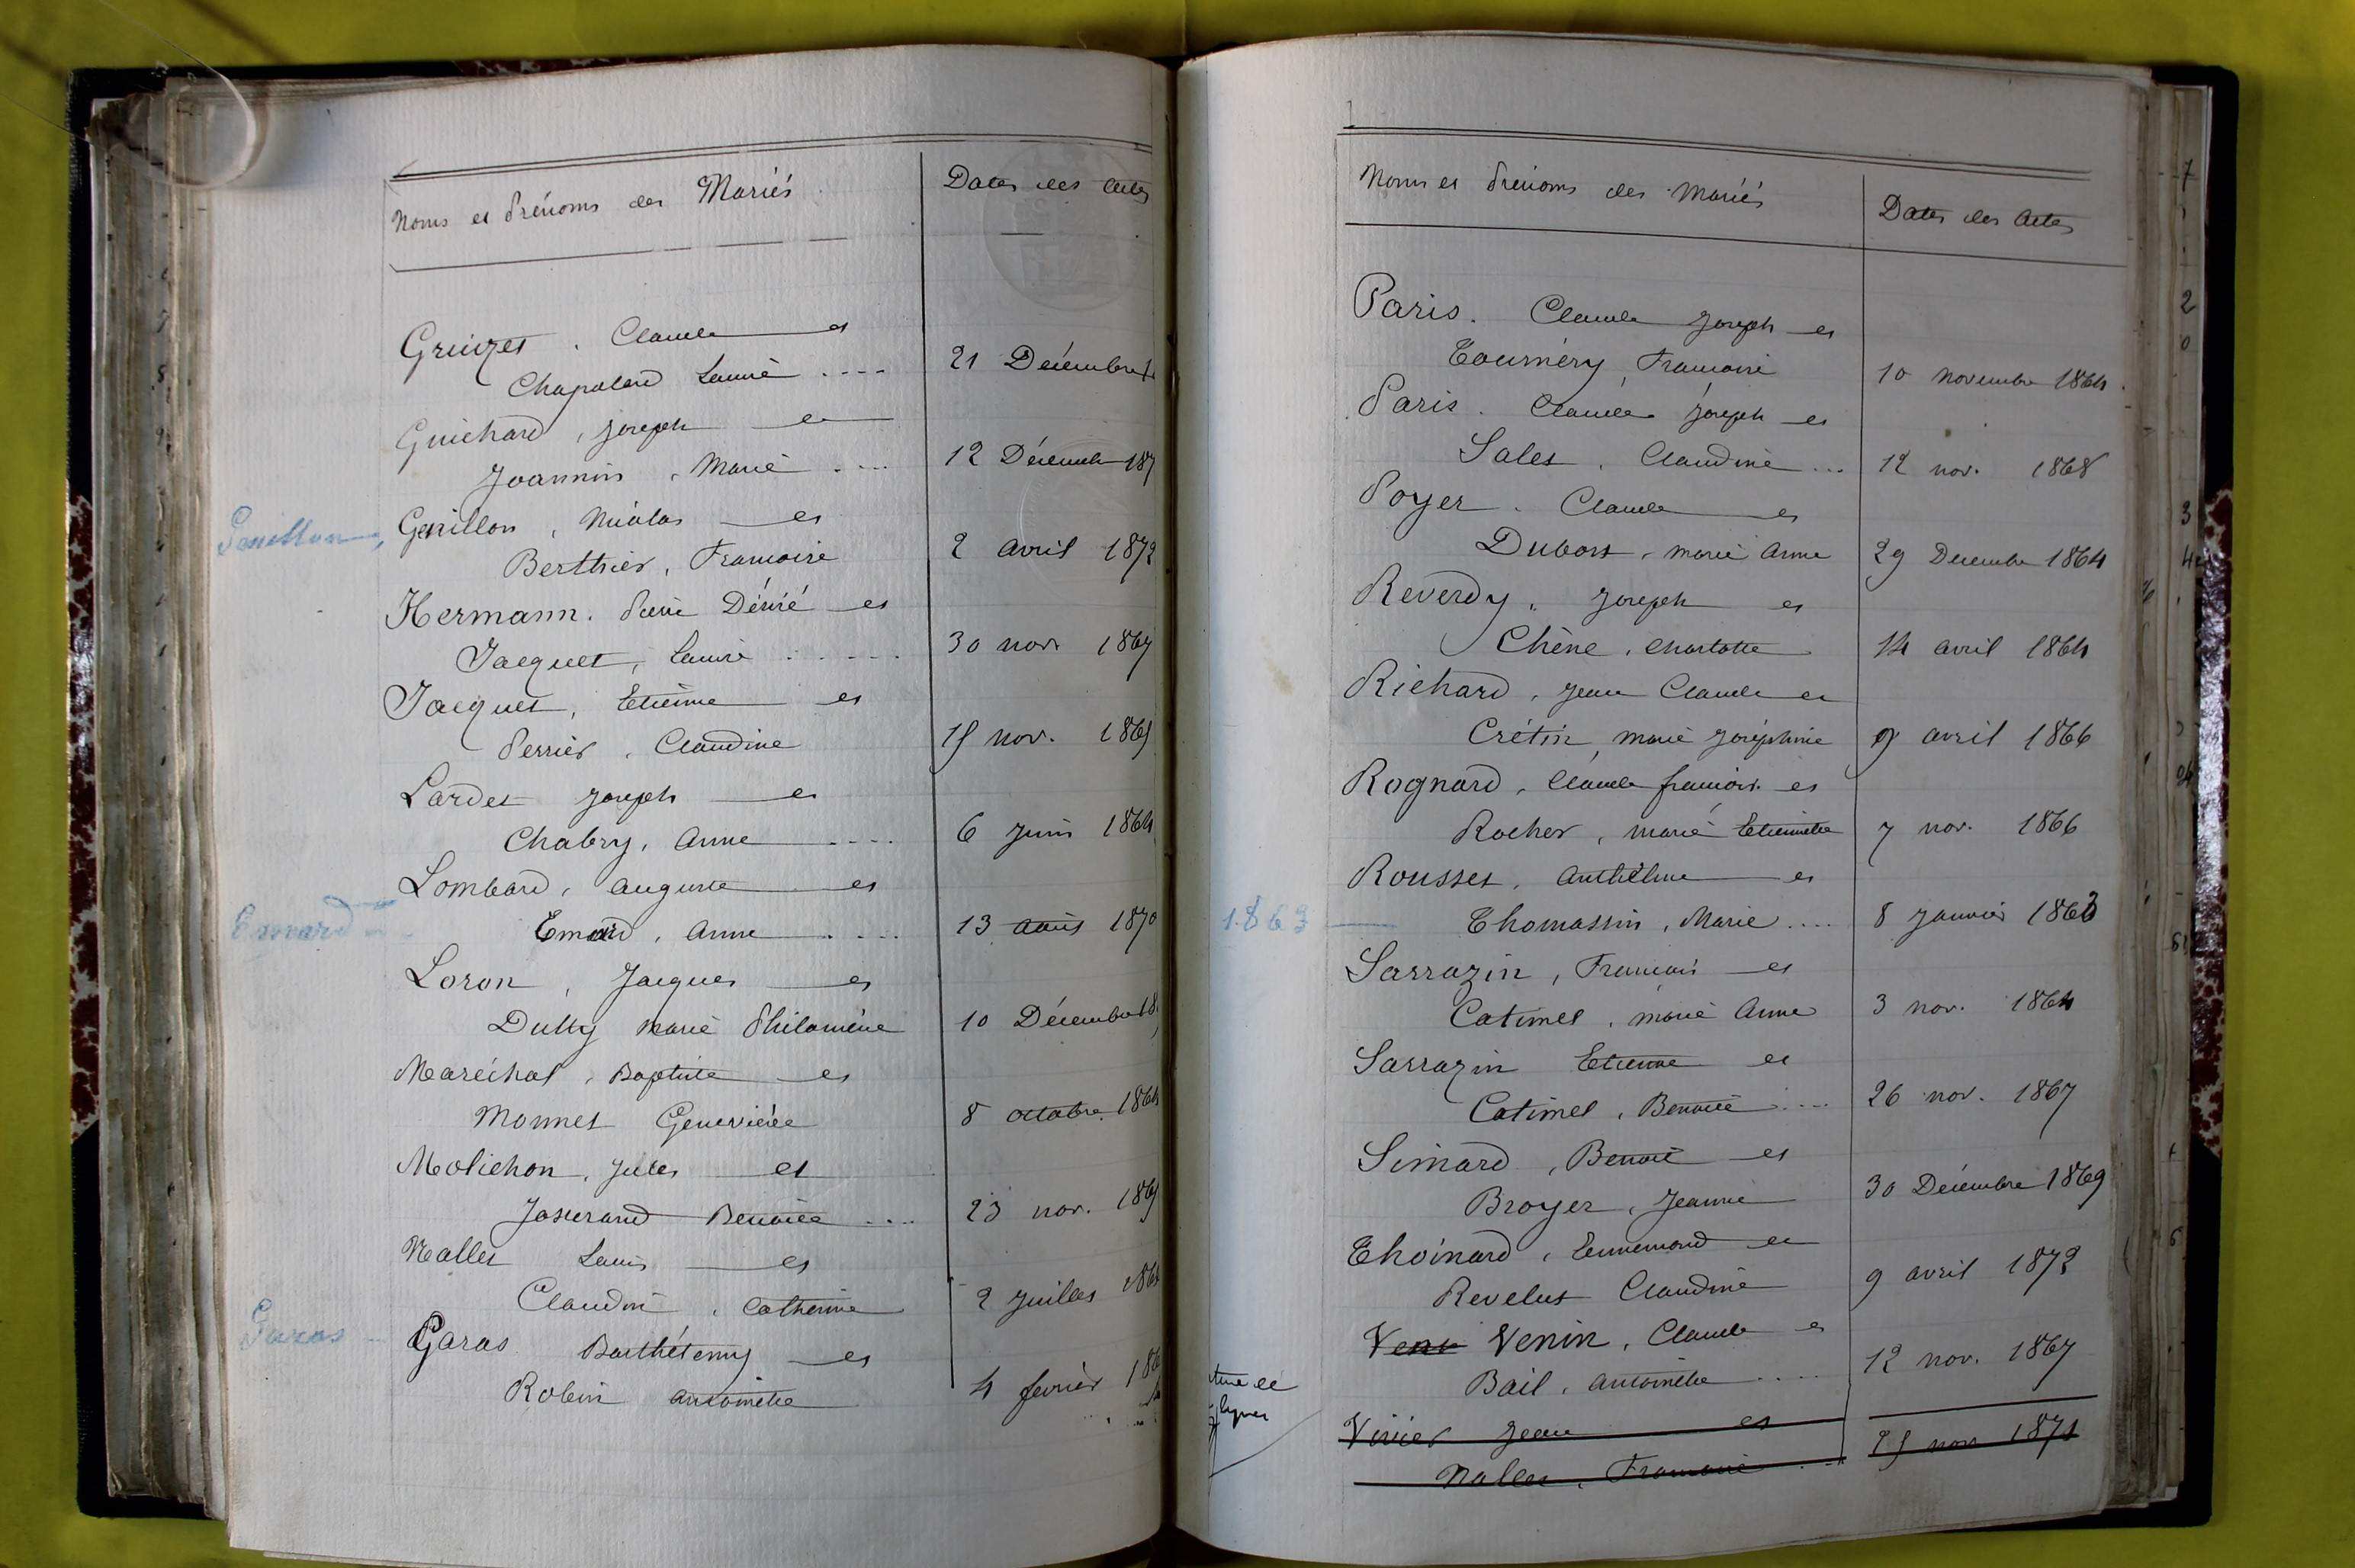 Noms et Prénoms des Mariés
Dates des Actes
Gruizet, Claude et
Chapolard Louise .... 21 Décembre
Guichard, Joseph et
Joannin, Marie .... 12 Décembre 187
Genillon, Genillon, Nicolas et
Berthier, Francoise 2 avril 1872
Hermann. Pierre Désiré et
Jacquet, Louise ..... 30 nov. 1867
Jacquet, Etienne et
Perrier, Claudine 15 nov. 1865
Lardet Joseph et
Chabry, Anne .... 6 Juin 1864
Lombard, Auguste et
Emard Emard, Anne .... 13 1870
Loron, Jacques et
Dutty Marie Philomène 10 Décembre 18
Maréchal, Baptiste et
Monnet Geneviève 8 octobre 1864
Molichon, Jules et
Josserand Benoite .... 23 nov. 186
Nallet Louis et
Claudin, Catherine 2 Juillet 186
Garas Garas Barthélemy et
Robin Antoinette 4 février 186
Noms et Prénoms des Mariés
Dates des Actes
Paris. Claude Joseph et
Tournéry, Francoise 10 novembre 1864.
Paris. Claude Joseph et
Sales, Claudine ... 12 nov. 1868
Poyer. Claude et
Dubost, Marie Anne 29 Decembre 1864
Reverdy, Joseph et
Chêne, Charlotte 14 avril 1864
Richard, Jean Claude et
Crétin, Marie Joséphine 9 avril 1866
Rognard, Claude francois et
Rocher, Marie Etiennette 7 nov. 1866
Rousset, Anthelme et
1863 Thomassin, Marie .... 8 Janvier 1863
Sarrazin, Francois et
Catimel, Marie Anne 3 nov. 1864
Sarrazin Etienne et
Catimel, Benoite .... 26 nov. 1867
Simard, Benoit et
Broyer, Jeanne 30 Décembre 1869
Thoinard, Ennemond et
Revelut Claudine 9 avril 1872
Veni Venin, Claude et
Bail, Antoinette .... 12 nov. 1867
lignes
Vivier Jean et
Nallet, Francoise ... 25 nov 1871